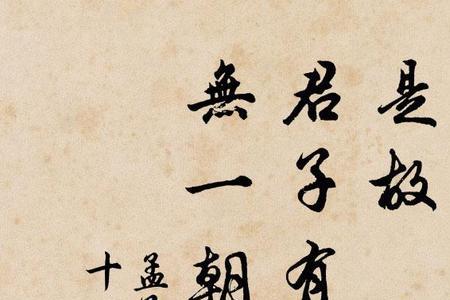 是故
君子有
無一朝
孟
十